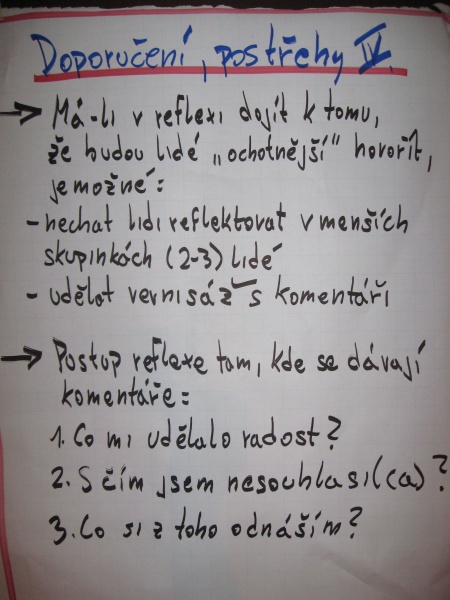 Doporučení, postřehy IV.
→ Má-li v reflexi dojít k tomu,
že budou lidé „ochotnější" hovořit,
je možné:
- nechat lidi reflektovat v menších
skupinkách (2-3) lidé
- udělat vernisáž s komentáři
→ Postup reflexe tam, kde se dávají
komentáře:
1. Co mi udělalo radost?
2. S čím jsem nesouhlasil(ca)?
3. Co si z toho odnáším?